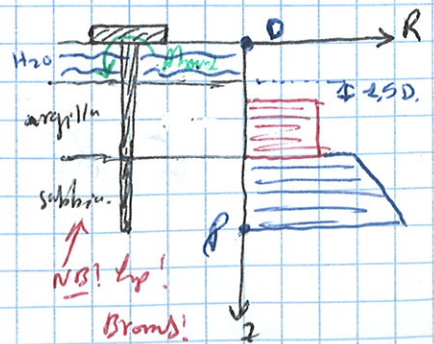 O
R
H2O
Mmax
1,5D.
argilla
sabbia
P
NB! Hp!
Broms!
z